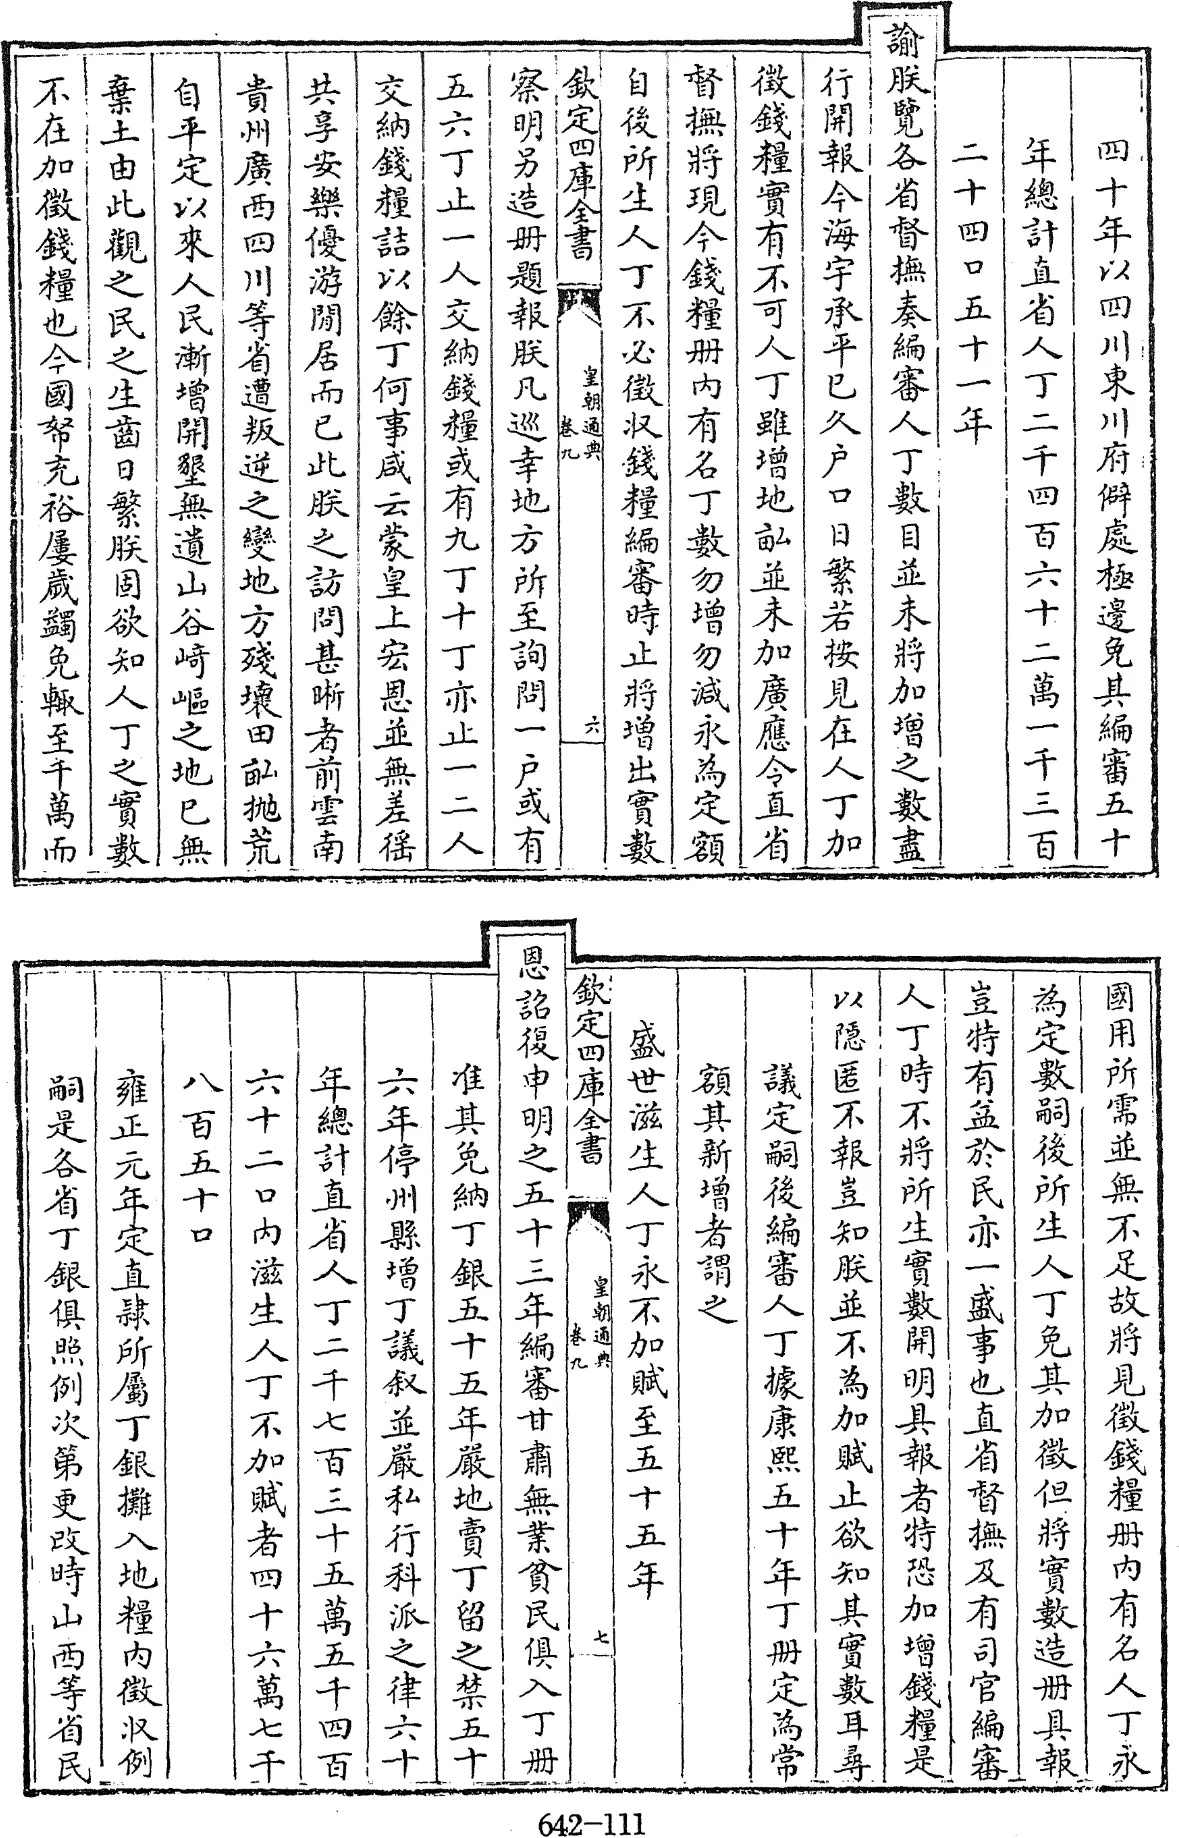 四十年以四川東川府僻處極邊免其編審五十
年總計直省人丁二千四百六十二萬一千三百
二十四口五十一年
諭朕覽各省督撫奏編審人丁數目並未將加增之數盡
行開報今海宇承平已久户口日繁若按見在人丁加
徵錢糧實有不可人丁雖增地畝並未加廣應令直省
督撫將現今錢糧册内有名丁數勿增勿減永為定額
自後所生人丁不必徵收錢糧編審時止將增出實數
欽定四庫全書
皇朝通典
卷九
六
察明另造册題報朕凡巡幸地方所至詢問一户或有
五六丁止一人交納錢糧或有九丁十丁亦止一二人
交納錢糧詰以餘丁何事咸云蒙皇上宏恩並無差徭
共享安樂優游閒居而已此朕之訪問甚晰者前雲南
貴州廣西四川等省遭叛逆之變地方殘壞田畝抛荒
自平定以來人民漸增開墾無遺山谷崎嶇之地已無
棄土由此觀之民之生齒日繁朕固欲知人丁之實數
不在加徵錢糧也今國帑充裕屢歲蠲免輒至千萬而
國用所需並無不足故將見徵錢糧册内有名人丁永
為定數嗣後所生人丁免其加徵但將實數造册具報
豈特有益於民亦一盛事也直省督撫及有司官編審
人丁時不將所生實數開明具報者特恐加增錢糧是
以隱匿不報豈知朕並不為加賦止欲知其實數耳尋
議定嗣後編審人丁據康熙五十年丁册定為常
額其新增者謂之
盛世滋生人丁永不加賦至五十五年
欽定四庫全書
皇朝通典
卷九
七
恩詔復申明之五十三年編審甘肅無業貧民俱入丁册
准其免納丁銀五十五年嚴地賣丁留之禁五十
六年停州縣增丁議叙並嚴私行科派之律六十
年總計直省人丁二千七百三十五萬五千四百
六十二口内滋生人丁不加賦者四十六萬七千
八百五十口
雍正元年定直隸所屬丁銀攤入地糧内徵收例
嗣是各省丁銀俱照例次第更改時山西等省民
642-111